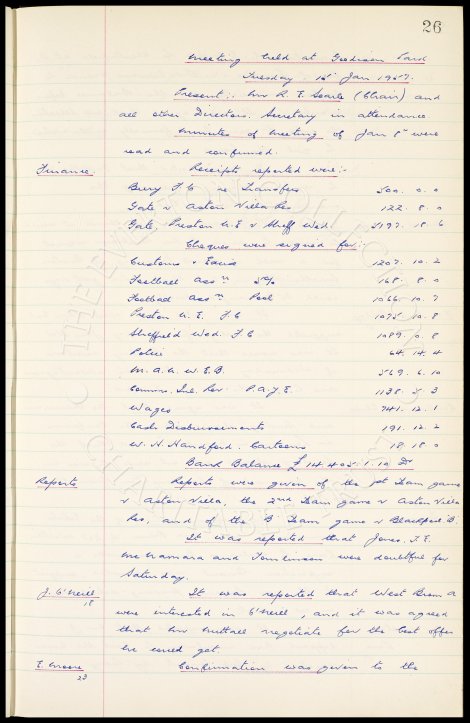 26
Meeting held at Goodison Park
Tuesday: 15th Jan 1957.
Present:- Mr R. E. Searle (Chair) and
all other Directors. Secretary in attendance
Minutes of Meeting of Jan 8th were
read and confirmed.
Finance. Receipts reported were:-
Bury F C re Transfers 500. 0. 0
Gate v Aston Villa Res 122. 8. 0
Gate, Preston N. E v Sheff Wed 5197. 18. 6
Cheques were signed for:-
Customs & Excise 1207. 10. 2
Football Assn 5% 168. 8. 0
Football Assn Pool 1066. 10. 7
Preston N. E. F C 1075. 10. 8
Sheffield Wed. F C 1089. 0. 8
Police 64. 14. 4
M. & N. W. E. B. 569. 6. 10
Comms. Inl. Rev. P. A. Y. E. 1138. 5. 3
Wages 741. 12. 1
Cash Disbursements 191. 12. 2
W. H. Handford. Cartoons 18. 18. 0
Bank Balance £ 14.405. 1. 10 Dr
Reports Reports were given of the 1st Team game
v Aston Villa, the 2nd Team game v Aston Villa
Res, and of the B Team game v Blackpool B.
It was reported that Jones, T.E.
McNamara and Tomlinson were doubtful for
Saturday.
J. O'Neill It was reported that West Brom A
18
were interested in O'Neill, and it was agreed
that Mr Nuttall negotiate for the best offer
we could get.
E. Moore Confirmation was given to the
23
THE EVERTON COLLECTION
CHARITABLE TRUST